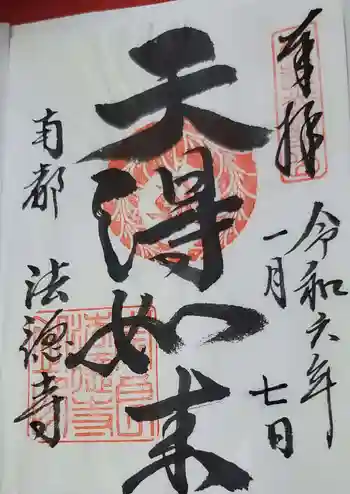 奉拝
令和六年
一月
七日
天得如来
南都
法徳寺